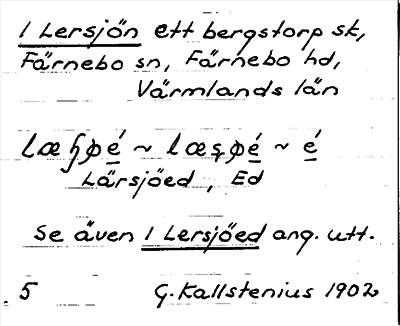 1 Lersjön ett bergstorp sk,
Färnebo sn, Färnebo hd,
Värmlands län
læɧøé ~ læȿøé ~ é
Lärsjöed, Ed
Se även 1 Lersjöed ang. utt.
5 G. Kallstenius 1902